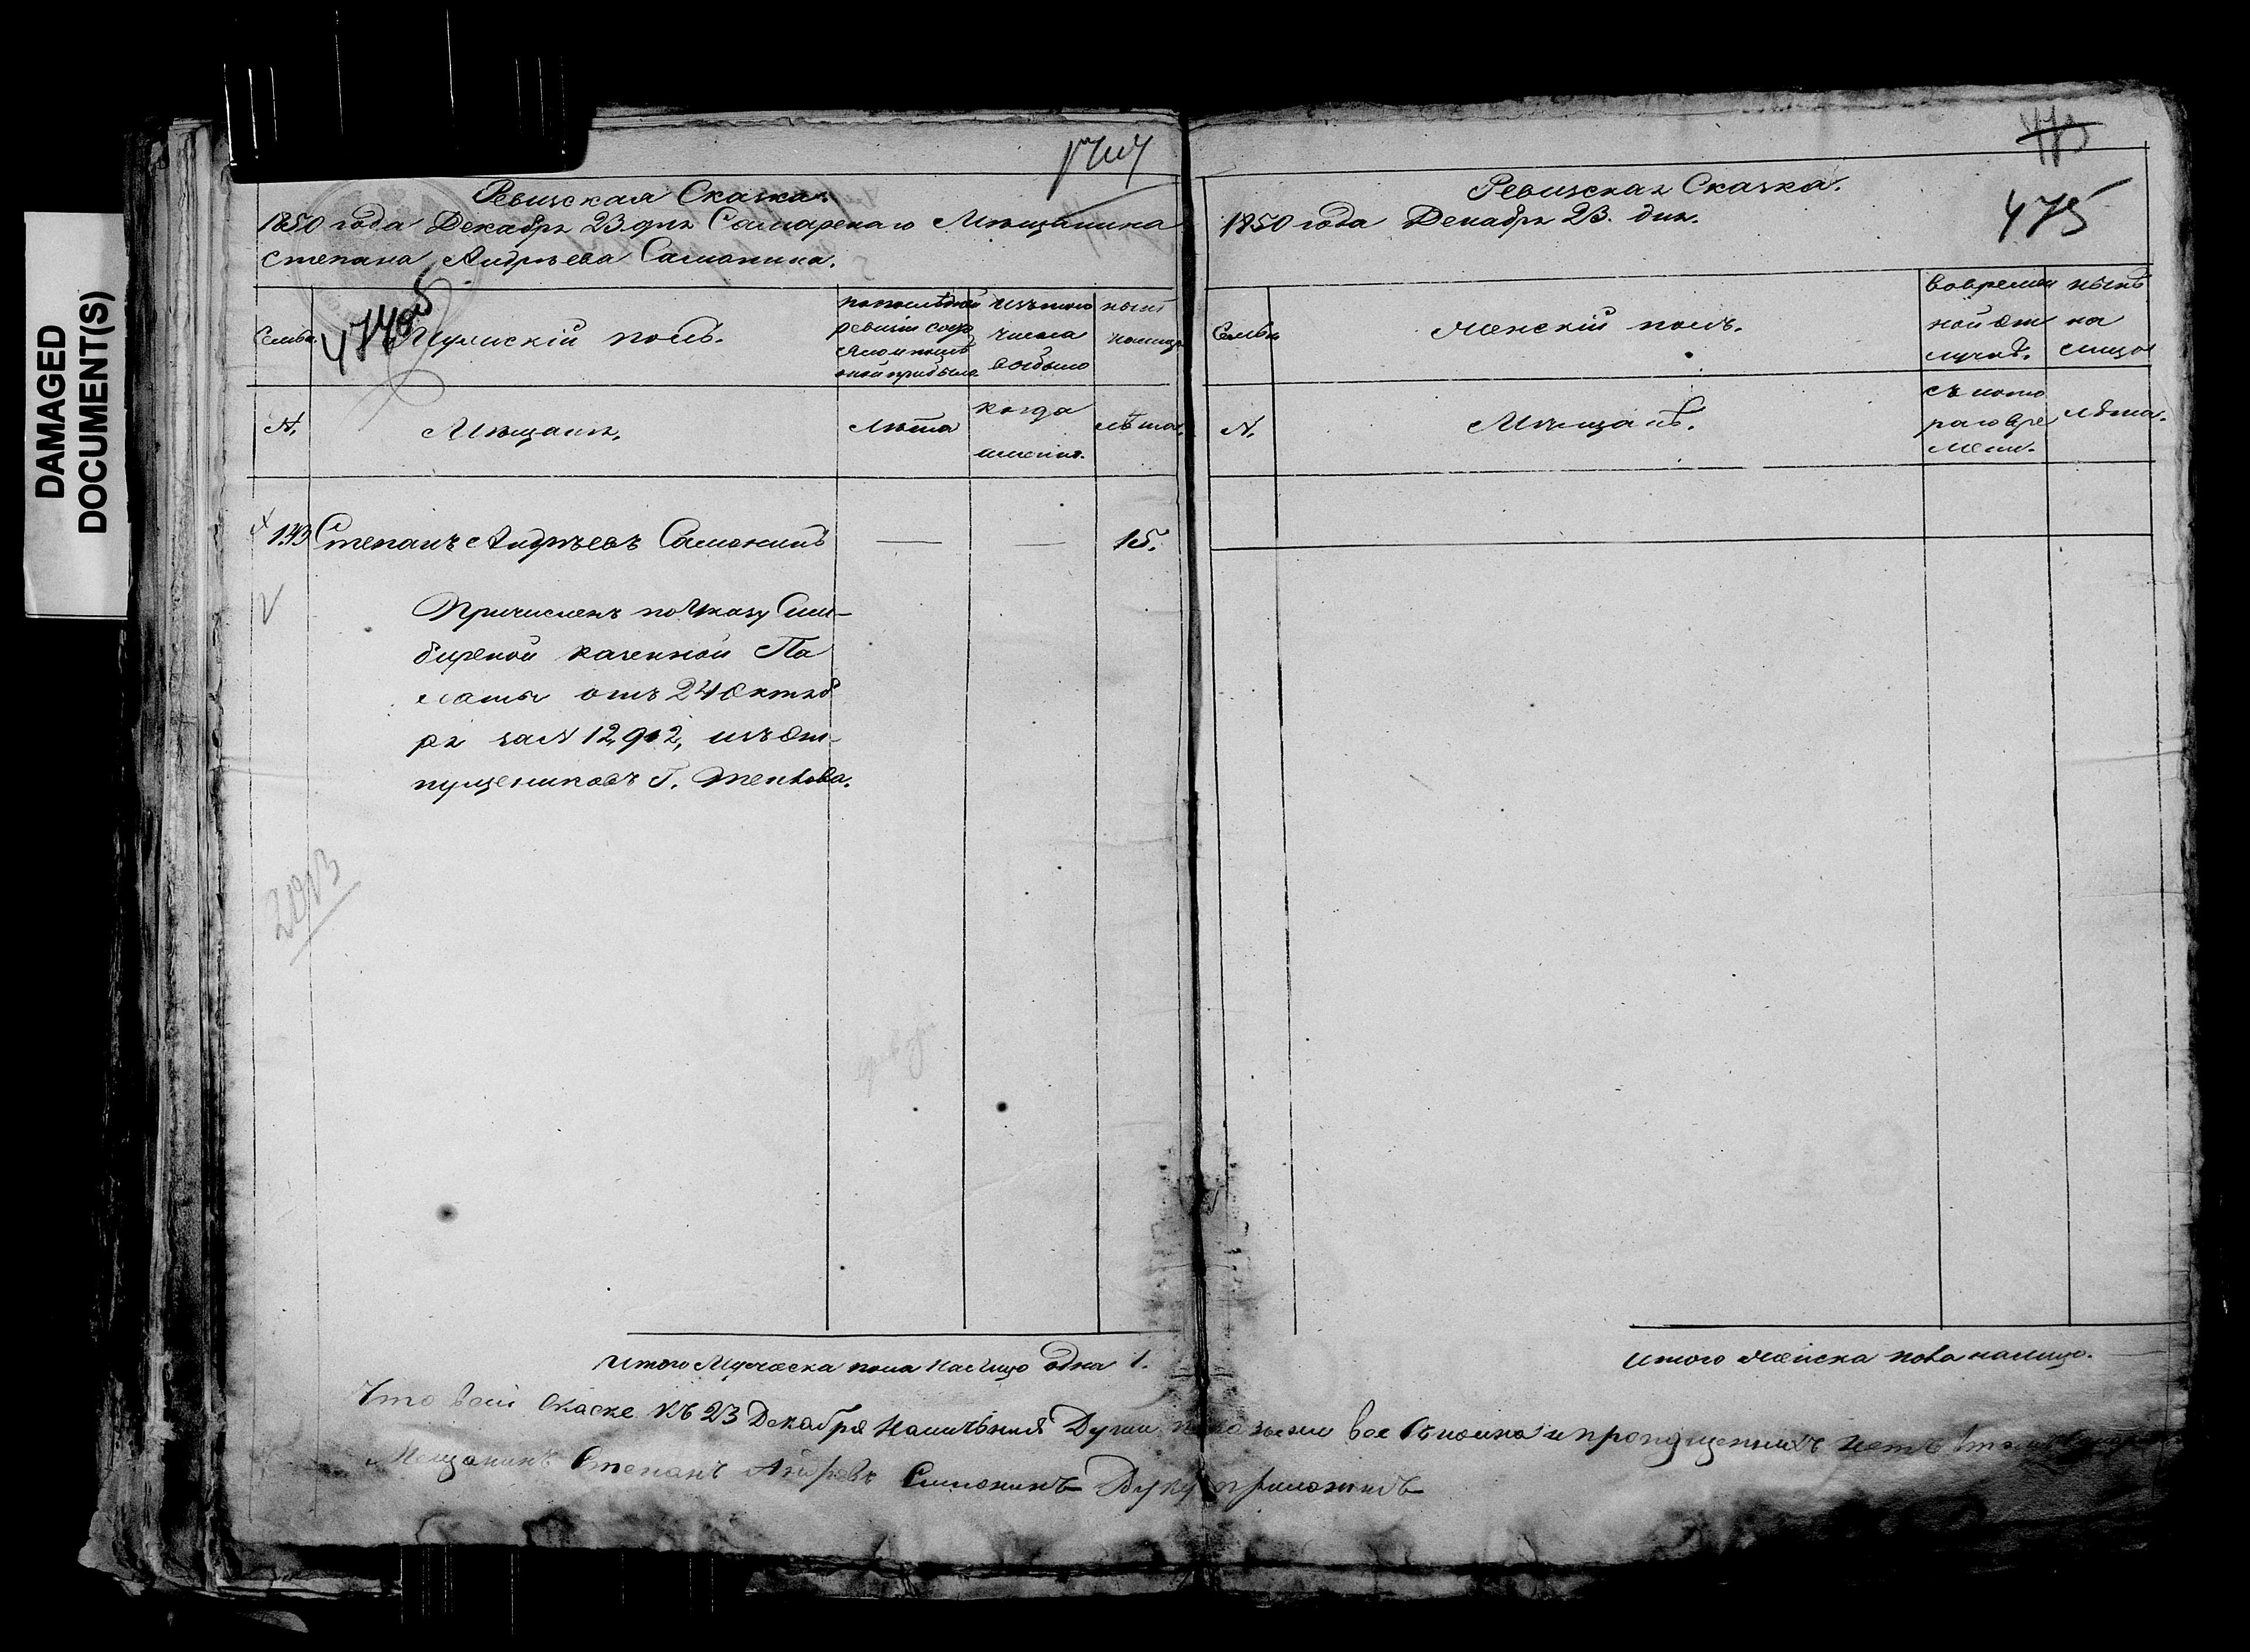 DAMAGED
DOCUMENT(S)
Ревизская Сказка.
1850 года Декабря 23 дня Самарскаго Мѣщанина
Степана Андрѣева Самонина.
Семья.
Мужискій полъ.
по послѣдней
ревизіи состояло и послѣ
оной прибыло
изъ того
числа
выбыло
нынѣ
налицо
№.
Мѣщане.
Лѣта
когда
именно.
лѣта.
143 Степанъ Андрѣевъ Самонинъ — — 15.
Причисленъ по Указу Сим-
бирской казенной Па
латы отъ 24 Октяб
ря за № 12,902, изъ От-
пущениковъ Г.
2013
Итого Мужеска пола налицо одна 1.
473
475
Ревизская Сказка.
1850 года Декабря 23. дня.
Семья
Женскій полъ.
во времен
ной от
лучкѣ.
нынѣ
на
лицо
№.
Мѣщанѣ.
съ кото
раго вре
мени.
Лѣта.
Итого женска пола налицо.
Что в сей Скаске къ 23 Декабря Наличныя Души показаны все Сполна и пропущенныхъ нетъ в томъ
Мещанинъ Степанъ Андревъ Самонинъ Руку приложилъ